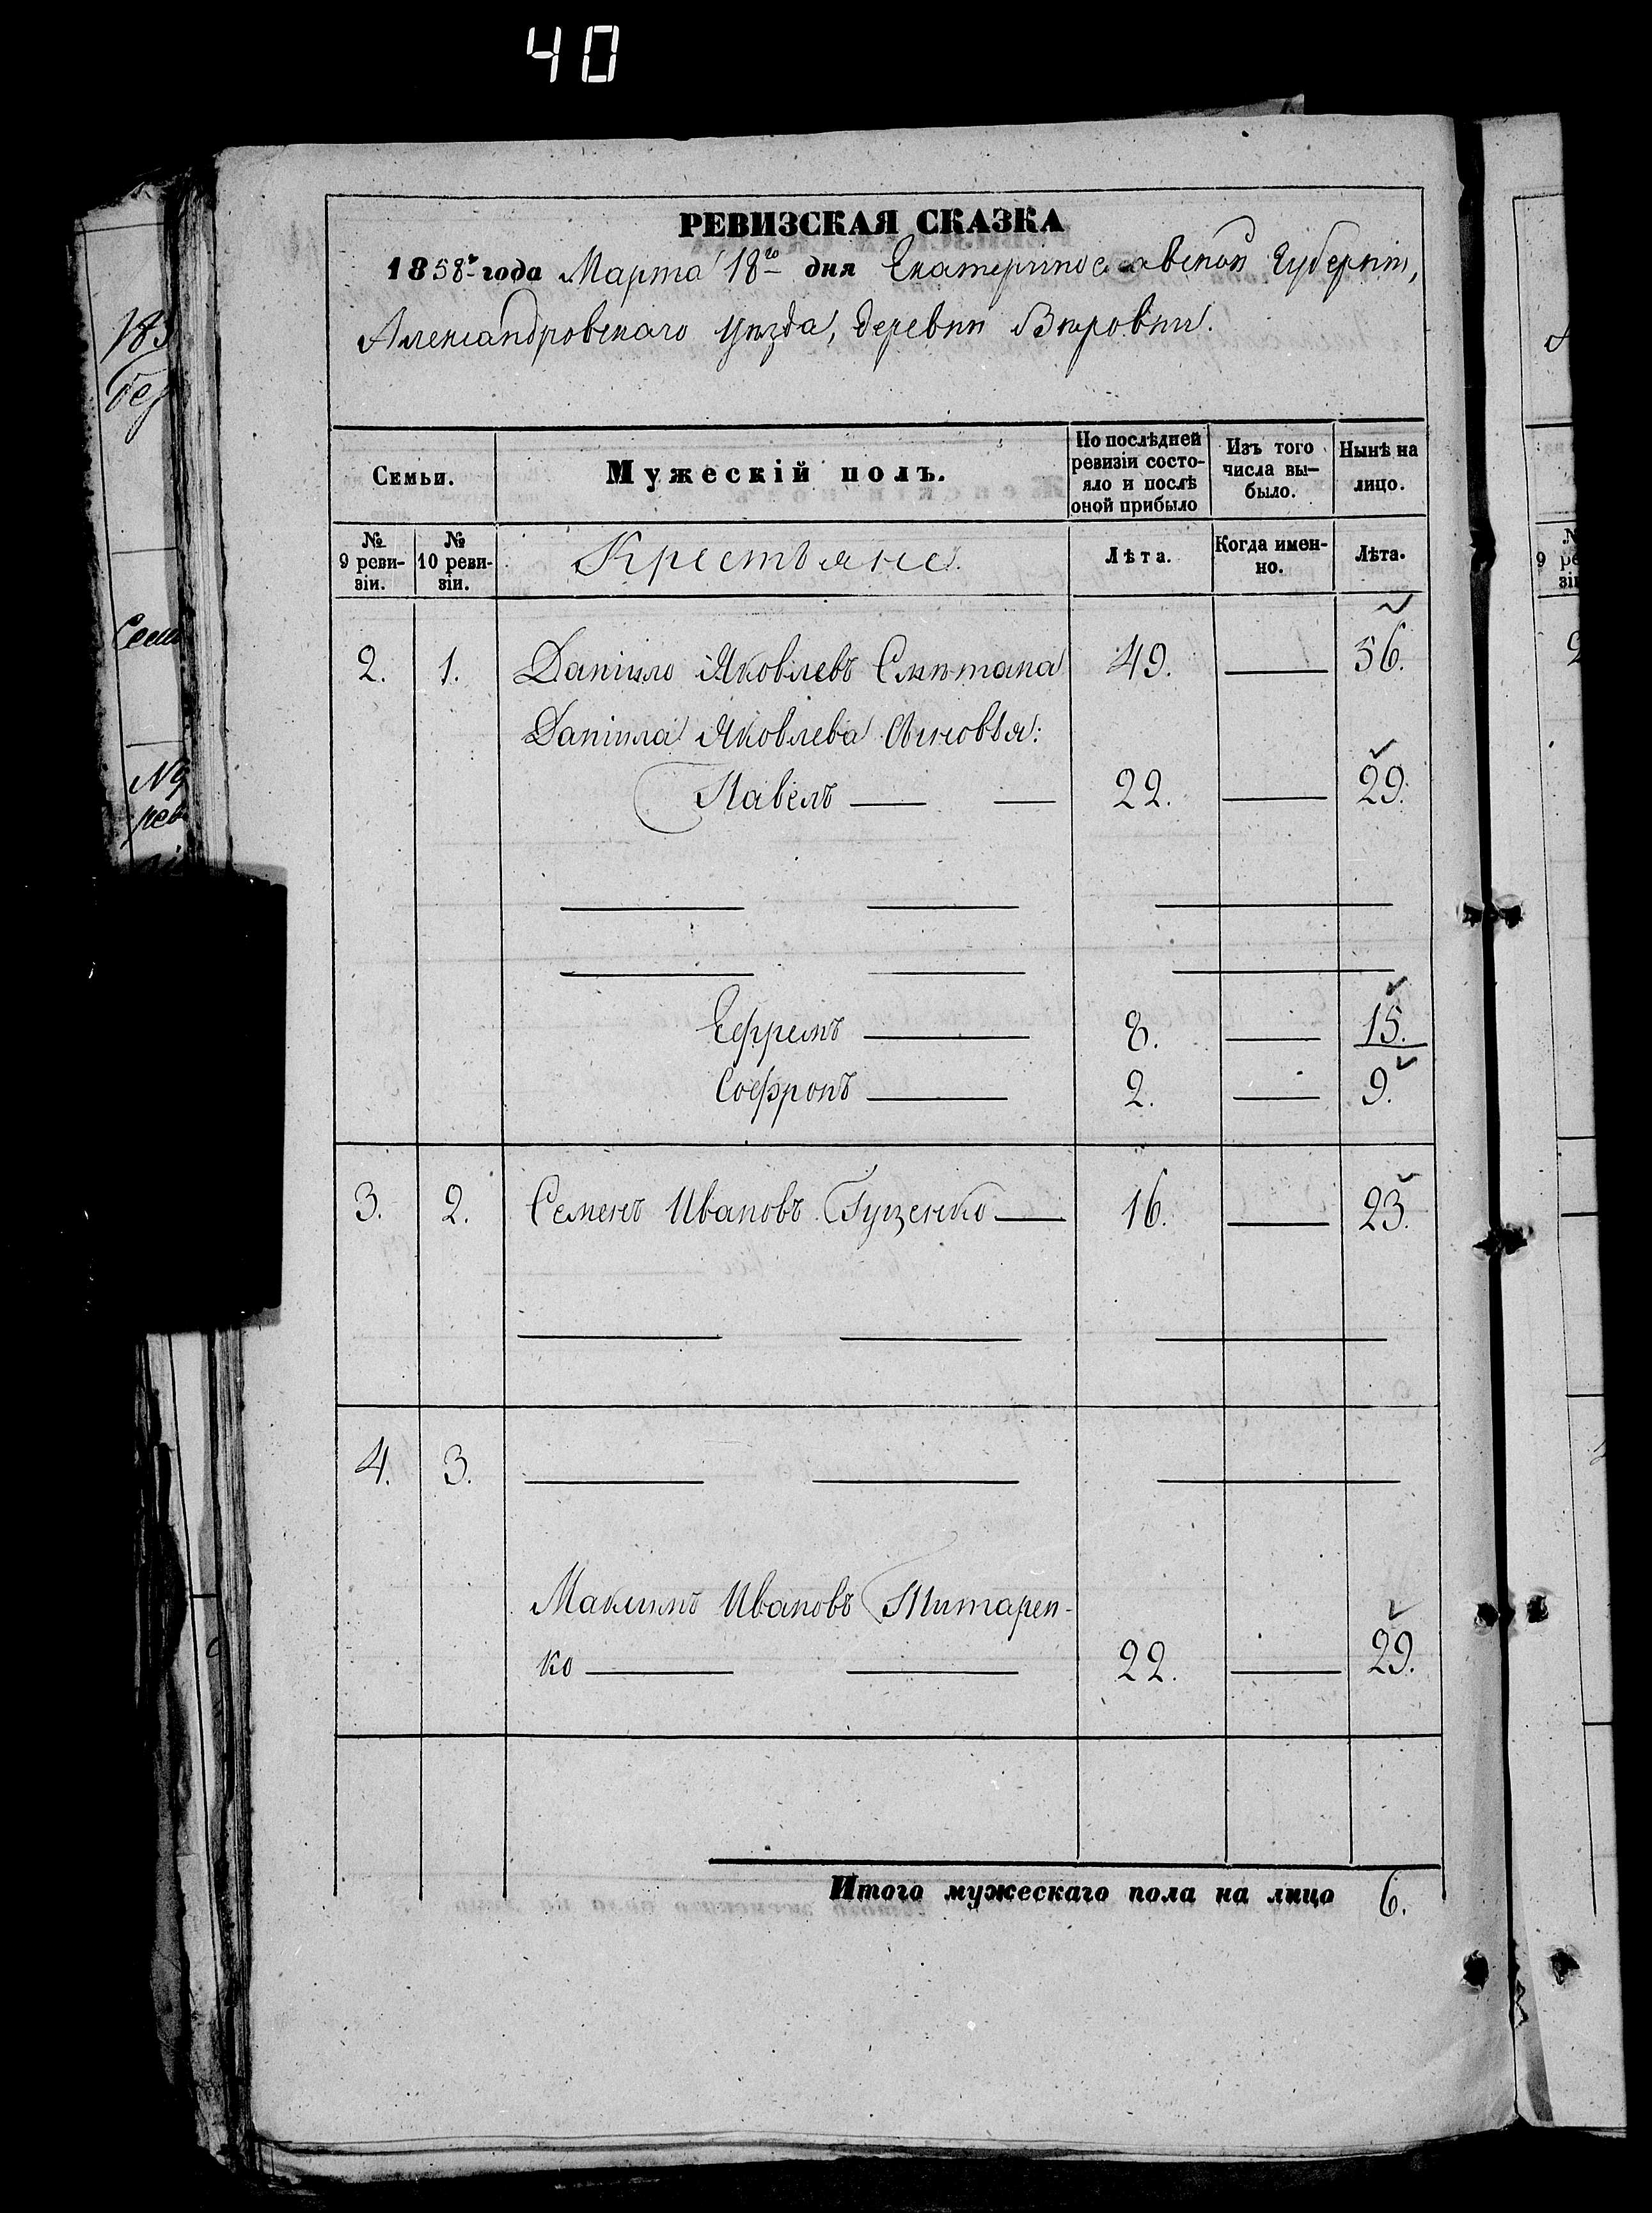 40
РЕВИЗСКАЯ СКАЗКА
1858го года Марта 18го дня Екатеринославской Губерніи,
Александровскаго уѣзда, деревни Вѣровки.
Семьи.
Мужескій полъ.
По послѣдней ревизіи состо-
яло и послѣ
оной прибыло
Изъ того
числа вы-
было.
Нынѣ на
лицо.
№
9 реви-
зіи.
№
10 реви-
зіи.
Крестьяне.
Лѣта.
Когда имен-
но.
Лѣта.
2. 1. Даніило Яковлевъ Смѣтана 49. 56.
Даніила Яковлева сыновья:
Павелъ 22. 29.
Ефремъ 8. 15.
Софронъ 2. 9.
3. 2. Семенъ Ивановъ Гуценко 16. 23.
4. 3.
Максимъ Ивановъ Титарен-
ко 22. 29.
Итого мужескаго пола на лицо 6.